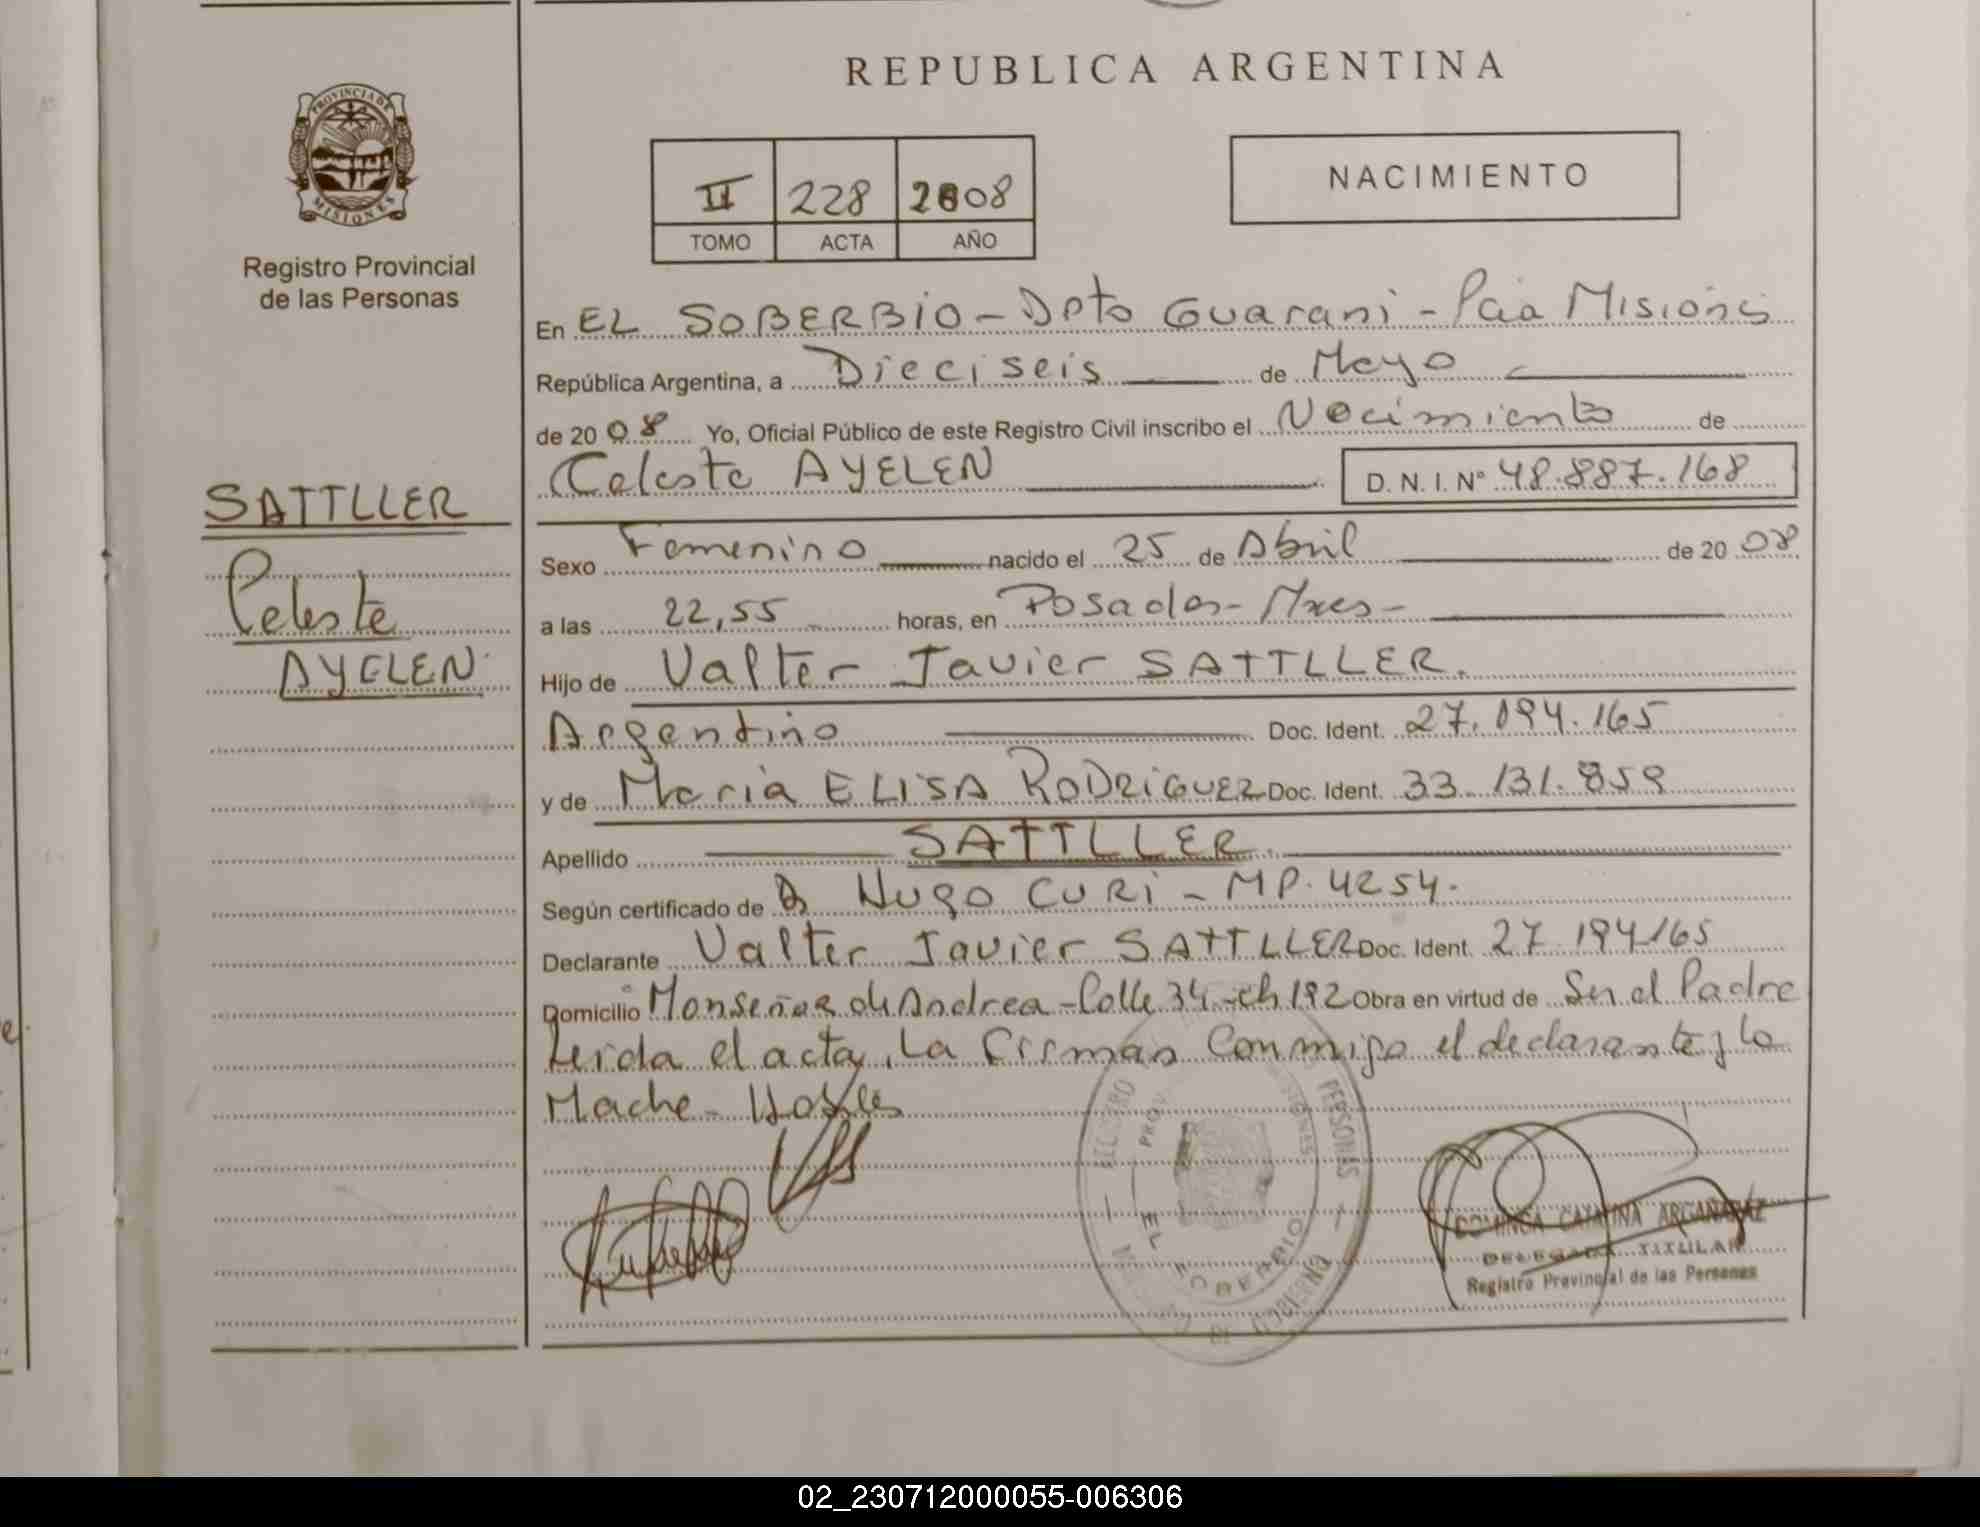 REPUBLICA ARGENTINA
PROVINCIA DE
MISIONES
Registro Provincial
de las Personas
II 228 2008
TOMO ACTA AÑO
NACIMIENTO
En EL SOBERBIO - Dpto Guarani - Pcia Misiones
República Argentina, a Dieciseis de Mayo
de 2008 Yo, Oficial Público de este Registro Civil inscribo el Nacimiento de
Celeste AYELEN D. N. I. Nº 48.887.168
SATTLLER
Celeste
AYELEN
Sexo Femenino nacido el 25 de Abril de 2008
a las 22,55 horas, en Posadas - Mnes -
Hijo de Valter Javier SATTLLER.
Argentino Doc. Ident. 27.194.165
y de Maria ELISA RODRIGUEZ Doc. Ident. 33.131.859
Apellido SATTLLER.
Según certificado de Dr HUGO CURI - MP. 4254.
Declarante Valter Javier SATTLLER Doc. Ident. 27 194165
Domicilio Monseñor de Andrea - Calle 34 - ch 192 Obra en virtud de Ser el Padre
Leida el acta, La Firman Conmigo el declarante y la
Madre -
REGISTRO PERSONAS
EL SOBERBIO
DOMINGA CATALINA ARGAÑARAZ
DELEGADA TITULAR
Registro Provincial de las Personas
02_230712000055-006306